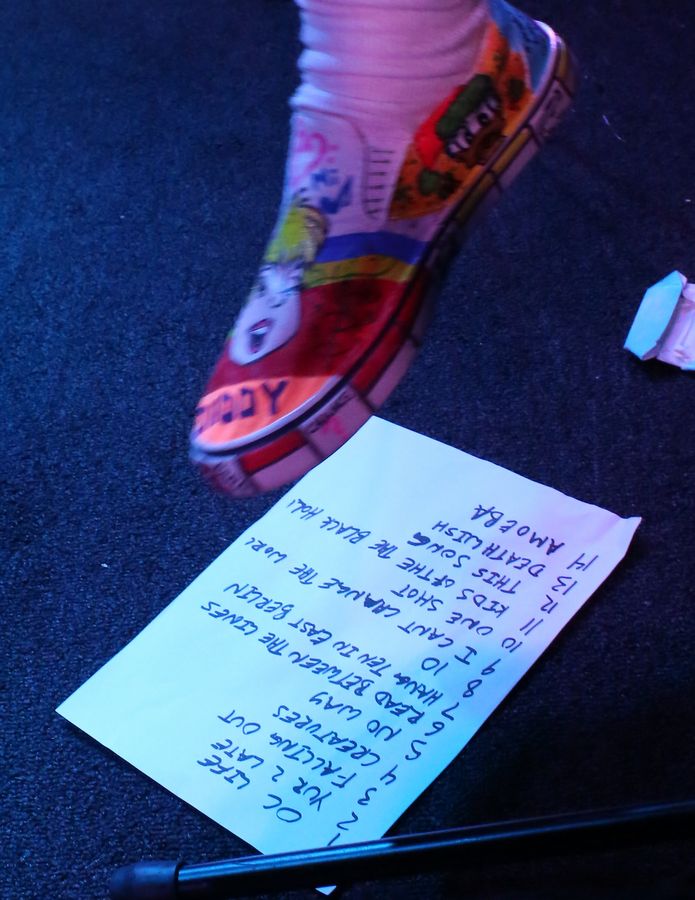 1 OC LIFE
2 YUR 2 LATE
3 FALLING OUT
4 CREATURES
5 NO WAY
6 READ BETWEEN THE LINES
7 HANG TEN IN EAST BERLIN
8 10
9 I CANT CHANGE THE WORL
10 ONE SHOT
11 KIDS OF THE THE BLACK HOL
12 THIS SONG
13 DEATHWISH
14 AMOEBA